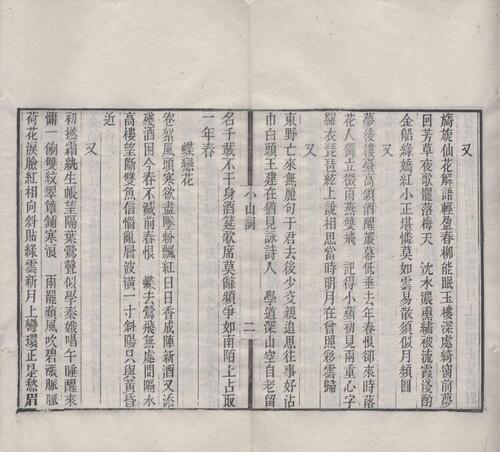 又
旖旎仙花解語輕盈春柳能眠玉樓深處綺窗前夢
回芳草夜歌罷落梅天　沈水濃熏繡被流霞淺酌
金船綠嬌紅小正堪憐莫如雲易散須似月頻圓
又
夢後樓臺高鎖酒醒簾幕低垂去年春恨卻來時落
花人獨立微雨燕雙飛　記得小蘋初見兩重心字
羅衣琵琶絃上說相思當時明月在曾照彩雲歸
又
東野亡來無麗句于君去後少交親追思往事好沾
巾白頭王建在猶見詠詩人　學道深山空自老留
小山詞
二
名千載不干身酒筵歌席莫辭頻爭如南陌上占取
一年春
蝶戀花
卷絮風頭寒欲盡墜粉飄紅日日香成陣新酒又添
殘酒困今春不減前春恨　蝶去鶯飛無處問隔水
高樓望斷雙魚信惱亂層波橫一寸斜陽只與黃昏
近
又
初撚霜紈生悵望隔葉鶯聲似學秦娥唱午睡醒來
慵一餉雙紋翠簟鋪寒浪　雨罷蘋風吹碧漲脈脈
荷花淚臉紅相向斜貼綠雲新月上彎環正是愁眉